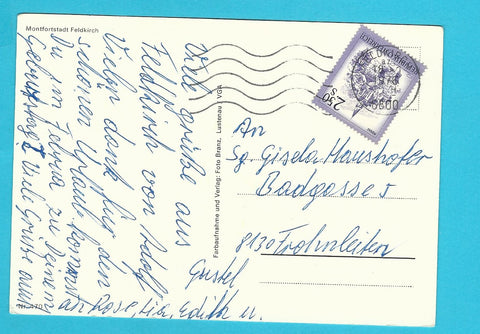 Montfortstadt Feldkirch
Viele Grüße aus
Feldkirch von Adolf
Vielen dank für den
schönen Urlaub kommst
Du im Februar zu Deinem
Geburtstag? Viele Grüße auch
an Rose, Lia, Edith u.
Gustel
Nr. 470
Farbaufnahme und Verlag: Foto Branz, Lustenau / VGA
REPUBLIK ÖSTERREICH
2.50
S
6800
An
Sg. Gisela Haushofer
Badgasse 5
8130 Frohnleiten